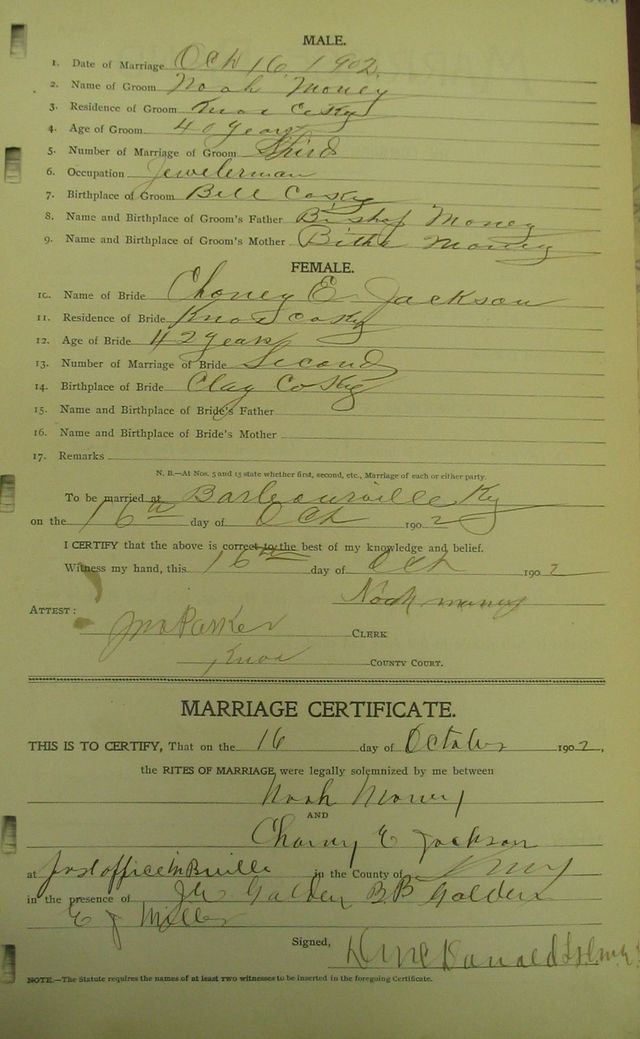 MALE.
1. Date of Marriage Oct 16, 1902.
2. Name of Groom Noah Money
3. Residence of Groom Knox Co Ky
4. Age of Groom 40 years
5. Number of Marriage of Groom Third
6. Occupation Jewelerman
7. Birthplace of Groom Bell Co Ky
8. Name and Birthplace of Groom's Father Bishop Money
9. Name and Birthplace of Groom's Mother Bitha Money
FEMALE.
10. Name of Bride Choney E Jackson
11. Residence of Bride Knox Co Ky
12. Age of Bride 42 years
13. Number of Marriage of Bride Second
14. Birthplace of Bride Clay Co Ky
15. Name and Birthplace of Bride's Father
16. Name and Birthplace of Bride's Mother
17. Remarks
N. B.—At Nos. 5 and 13 state whether first, second, etc., Marriage of each or either party.
To be married at Barbourville Ky
on the 16th day of Oct 1902
I CERTIFY that the above is correct to the best of my knowledge and belief.
Witness my hand, this 16th day of Oct 1902
Noah money
ATTEST:
Jno Parker CLERK
Knox COUNTY COURT.
MARRIAGE CERTIFICATE.
THIS IS TO CERTIFY, That on the 16 day of October 1902,
the RITES OF MARRIAGE were legally solemnized by me between
Noah Money
AND
Choney E Jackson
at office in Bville in the County of Knox
in the presence of Golden BB Golden
E J Miller
Signed, McDonald
NOTE.—The Statute requires the names of at least TWO witnesses to be inserted in the foregoing Certificate.